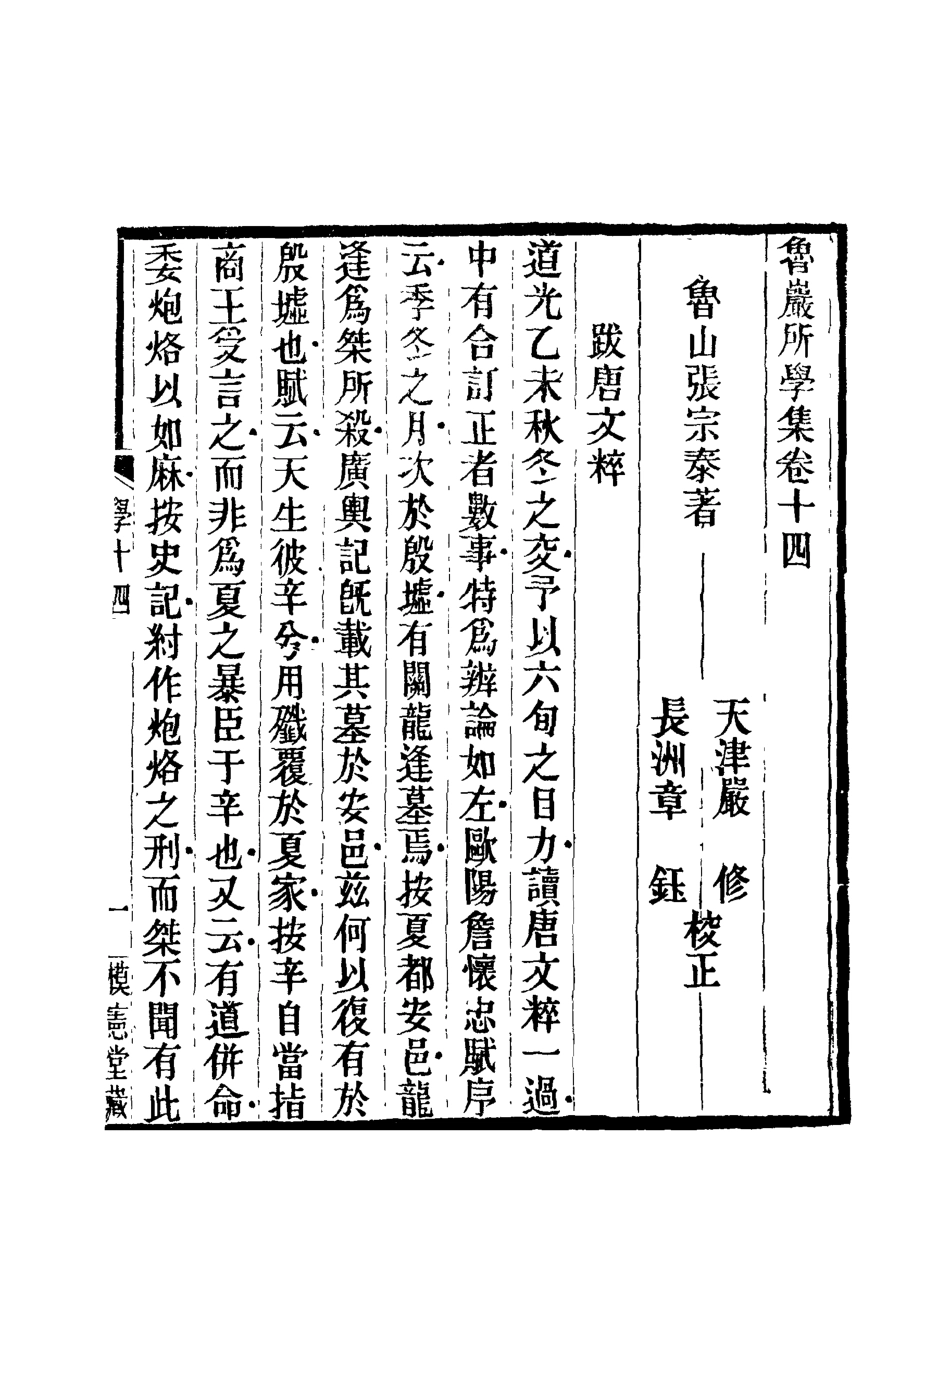 魯巖所學集卷十四
魯山張宗泰著
天津嚴　修
長洲章　鈺
校正
跋唐文粹
道光乙未秋冬之交予以六旬之日力讀唐文粹一過
中有合訂正者數事特爲辨論如左歐陽詹懷忠賦序
云季冬之月次於殷墟有關龍逢墓焉按夏都安邑龍
逢爲桀所殺廣輿記旣載其墓於安邑兹何以復有於
殷墟也賦云天生彼辛兮用殲覆於夏家按辛自當指
商王受言之而非爲夏之暴臣于辛也又云有道併命
委炮烙以如麻按史記紂作炮烙之刑而桀不聞有此
學十四
一
模憲堂藏